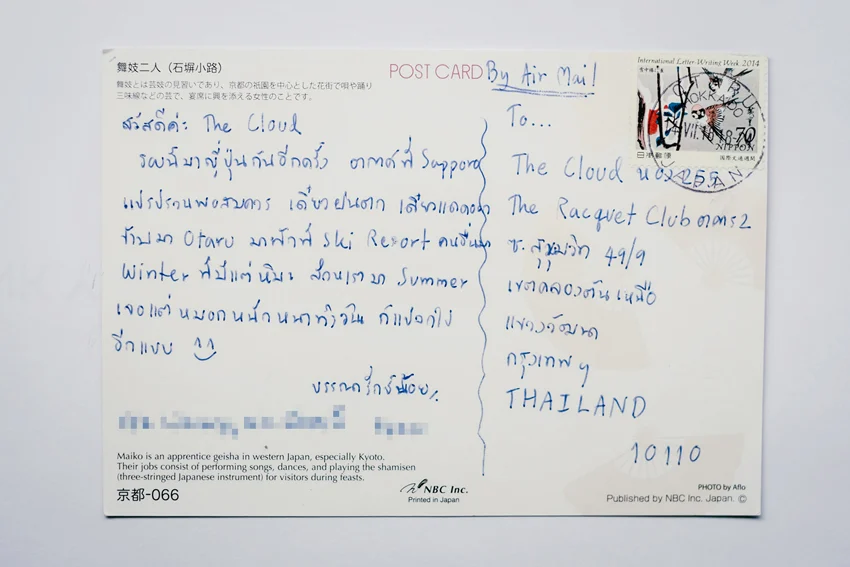 舞妓二人（石塀小路）
舞妓とは芸妓の見習いであり、京都の祇園を中心とした花街で唄や踊り
三味線などの芸で、宴席に興を添える女性のことです。
POST CARD
By Air Mail
International Letter-Writing Week 2014
70
NIPPON
日本郵便
国際文通週間
OTARU
JAPAN
สวัสดีค่ะ The Cloud
รอบนี้มาญี่ปุ่นกันอีกครั้ง อากาศที่ Sapporo
แปรปรวนพอสมควร เดี๋ยวฝนตก เดี๋ยวแดดออก
ข้ามมา Otaru มาพักที่ Ski Resort คนอื่นมา
Winter ที่มีแต่หิมะ ส่วนเรามา Summer
เจอแต่หมอกหนักหนาทั้งวัน ก็แปลกไป
อีกแบบ
To...
The Cloud 255
The Racquet Club อาคาร 2
ซ. สุขุมวิท 49/9
เขตคลองตันเหนือ
แขวงวัฒนา
กรุงเทพฯ
THAILAND
10110
Maiko is an apprentice geisha in western Japan, especially Kyoto.
Their jobs consist of performing songs, dances, and playing the shamisen
(three-stringed Japanese instrument) for visitors during feasts.
京都-066
NBC Inc.
Printed in Japan
PHOTO by Aflo
Published by NBC Inc. Japan. ©